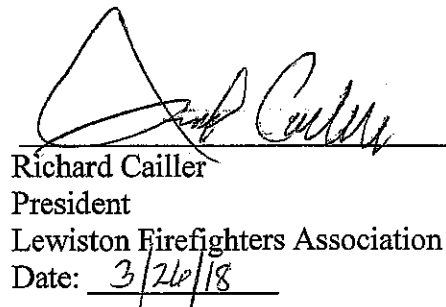 Richard Cailler
President
Lewiston Firefighters Association
Date: 3/26/18